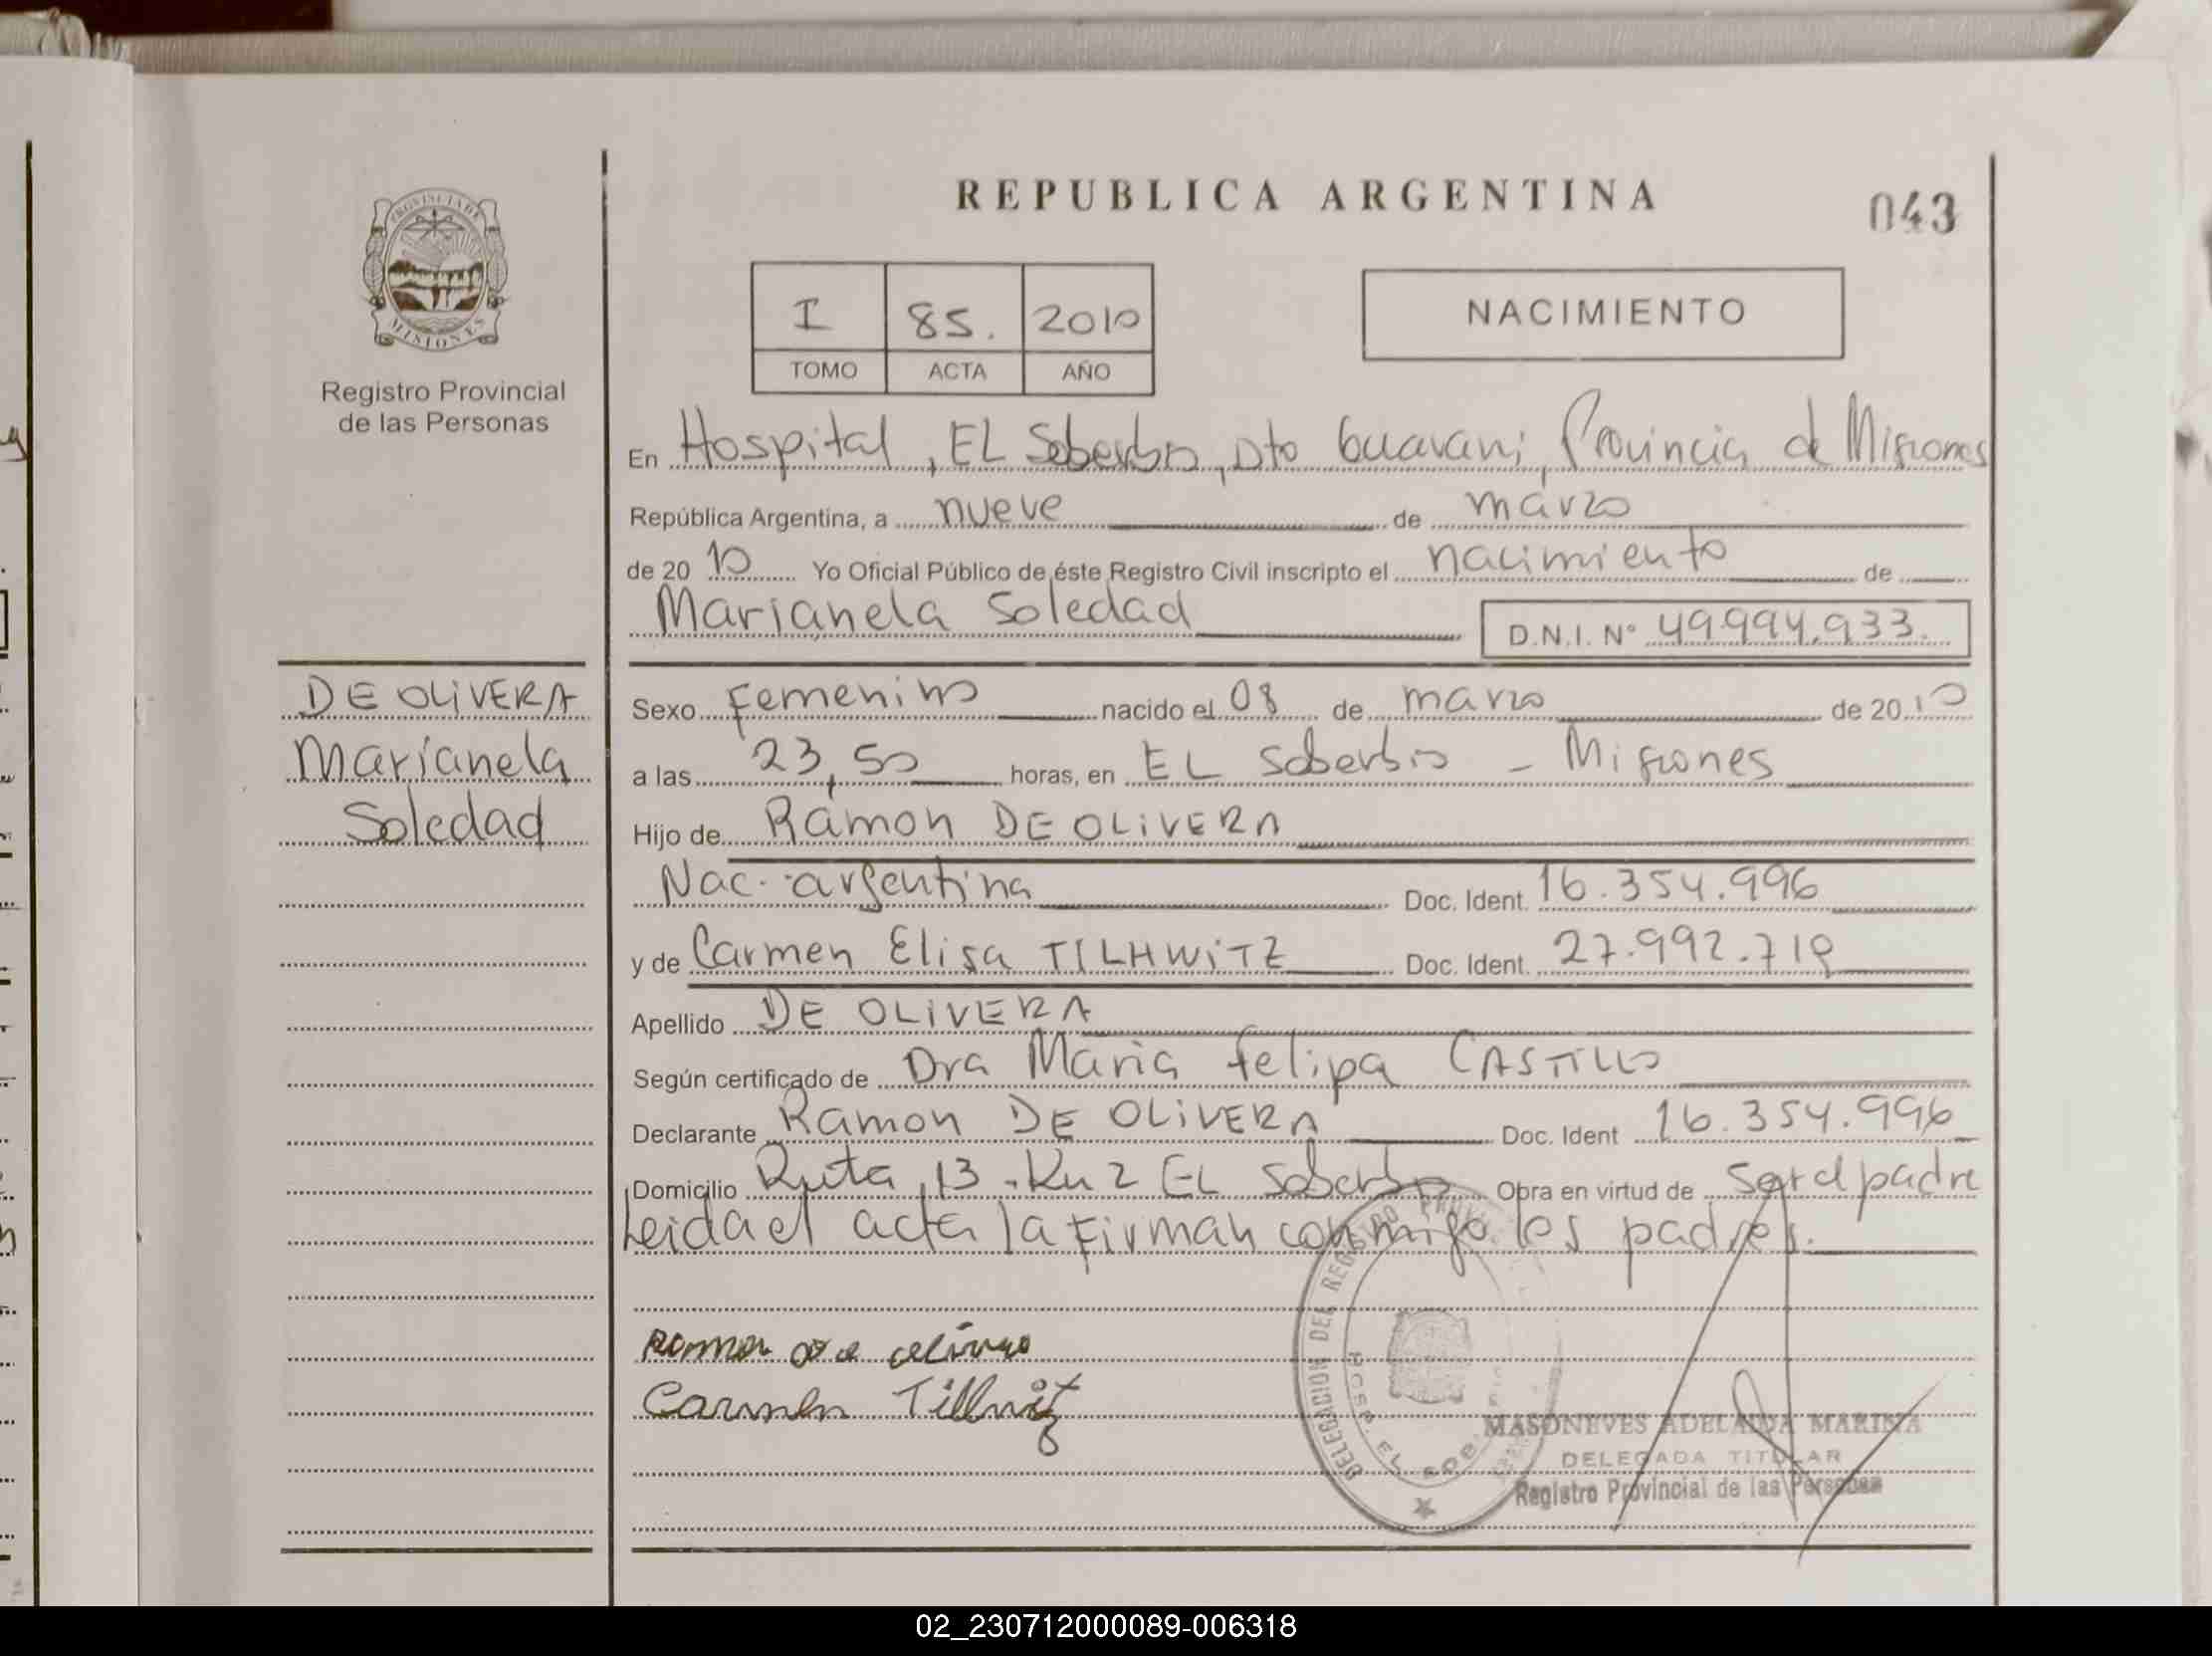 REPUBLICA ARGENTINA
043
PROVINCIA DE
MISIONES
Registro Provincial
de las Personas
I 85. 2010
TOMO ACTA AÑO
NACIMIENTO
En Hospital, EL Soberbio, Dto Guarani, Provincia de Misiones
República Argentina, a nueve de marzo
de 2010 Yo Oficial Público de éste Registro Civil inscripto el nacimiento de
Marianela Soledad D.N.I. N° 49.994.933.
DE OLIVERA
Marianela
Soledad
Sexo Femenino nacido el 08 de marzo de 2010
a las 23,50 horas, en EL Soberbio - Misiones
Hijo de Ramon DE OLIVERA
Nac. argentina Doc. Ident. 16.354.996
y de Carmen Elisa TILHWITZ Doc. Ident. 27.992.719
Apellido DE OLIVERA
Según certificado de Dra Maria Felipa CASTILLO
Declarante Ramon DE OLIVERA Doc. Ident 16.354.996
Domicilio Ruta 13 - Km 2 EL Soberbio Obra en virtud de ser el padre
Leida el acta la firman conmigo los padres.
Ramon de olivera
Carmen
DELEGACION DEL REGISTRO PROV
HOSP. EL SOB
MASONEVES ADELAIDA MARINA
DELEGADA TITULAR
Registro Provincial de las Personas
02_230712000089-006318